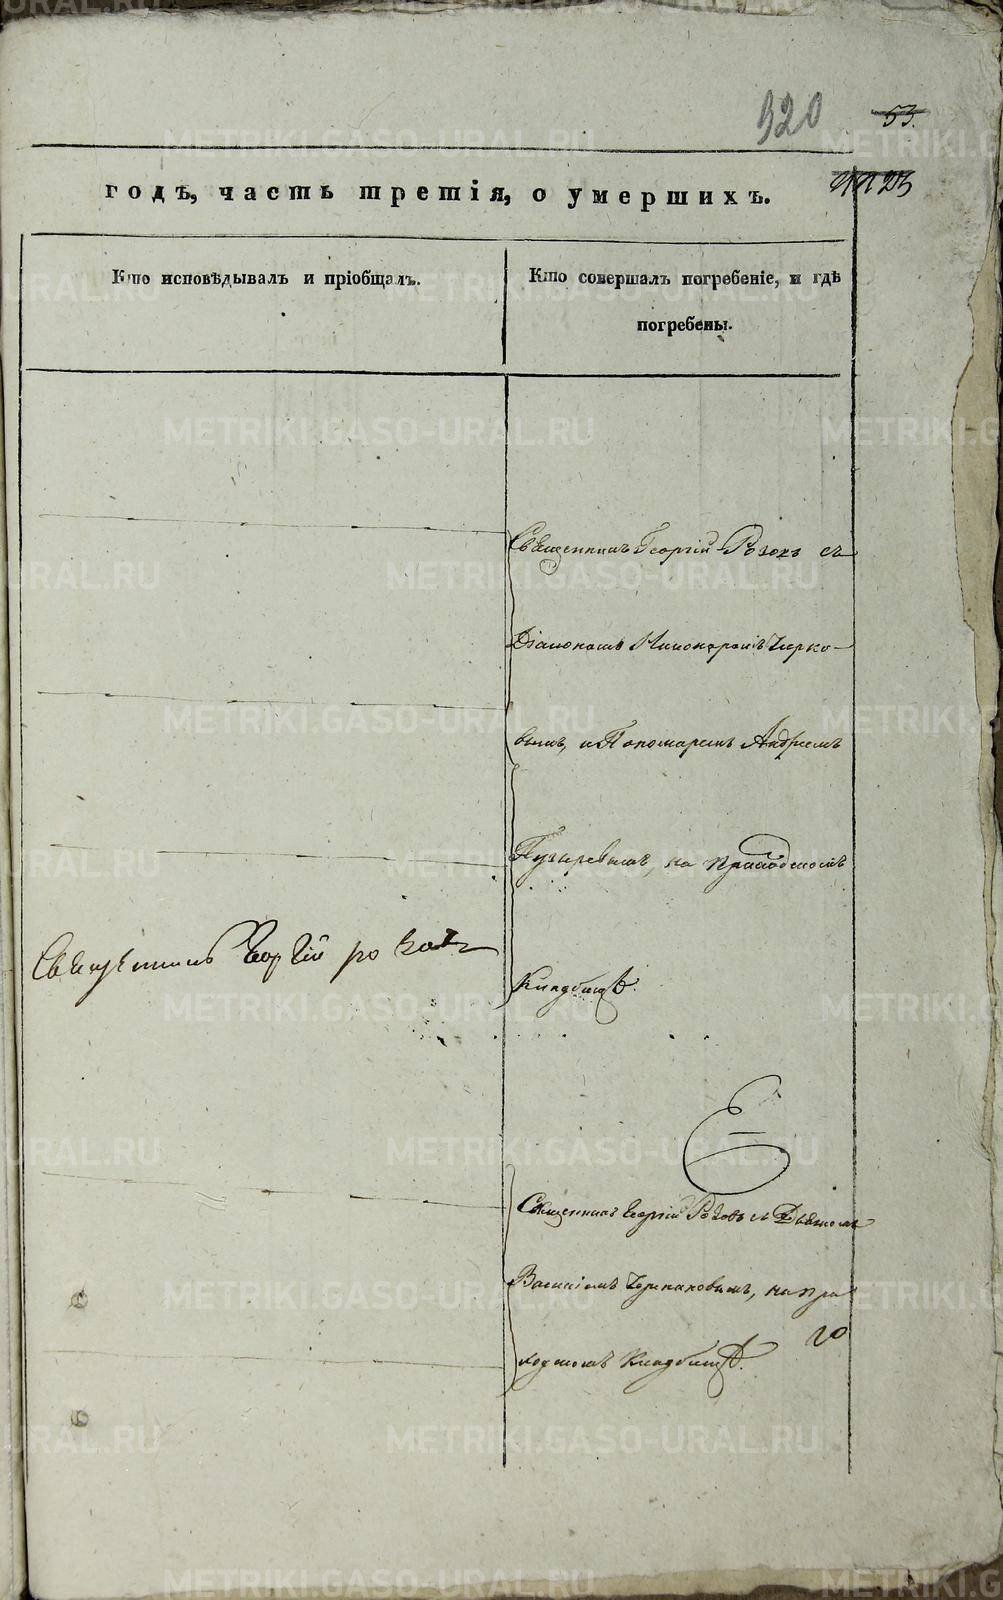 320 53.
годъ, часть третія, о умершихъ.
Кто исповѣдывалъ и пріобщалъ.
Кто совершалъ погребеніе, и гдѣ
погребены.
Священникъ Георгій Розовъ съ
Діакономъ Никоноромъ Церко-
вымъ, и Пономаремъ Андреемъ
Пузыревымъ, на Приходскомъ
Кладбищѣ.
Священникъ Георгій
Священникъ Георгій Розовъ съ Дьячкомъ
Василіемъ, на при
ходскомъ Кладбищѣ.
METRIKI.GASO-URAL.RU